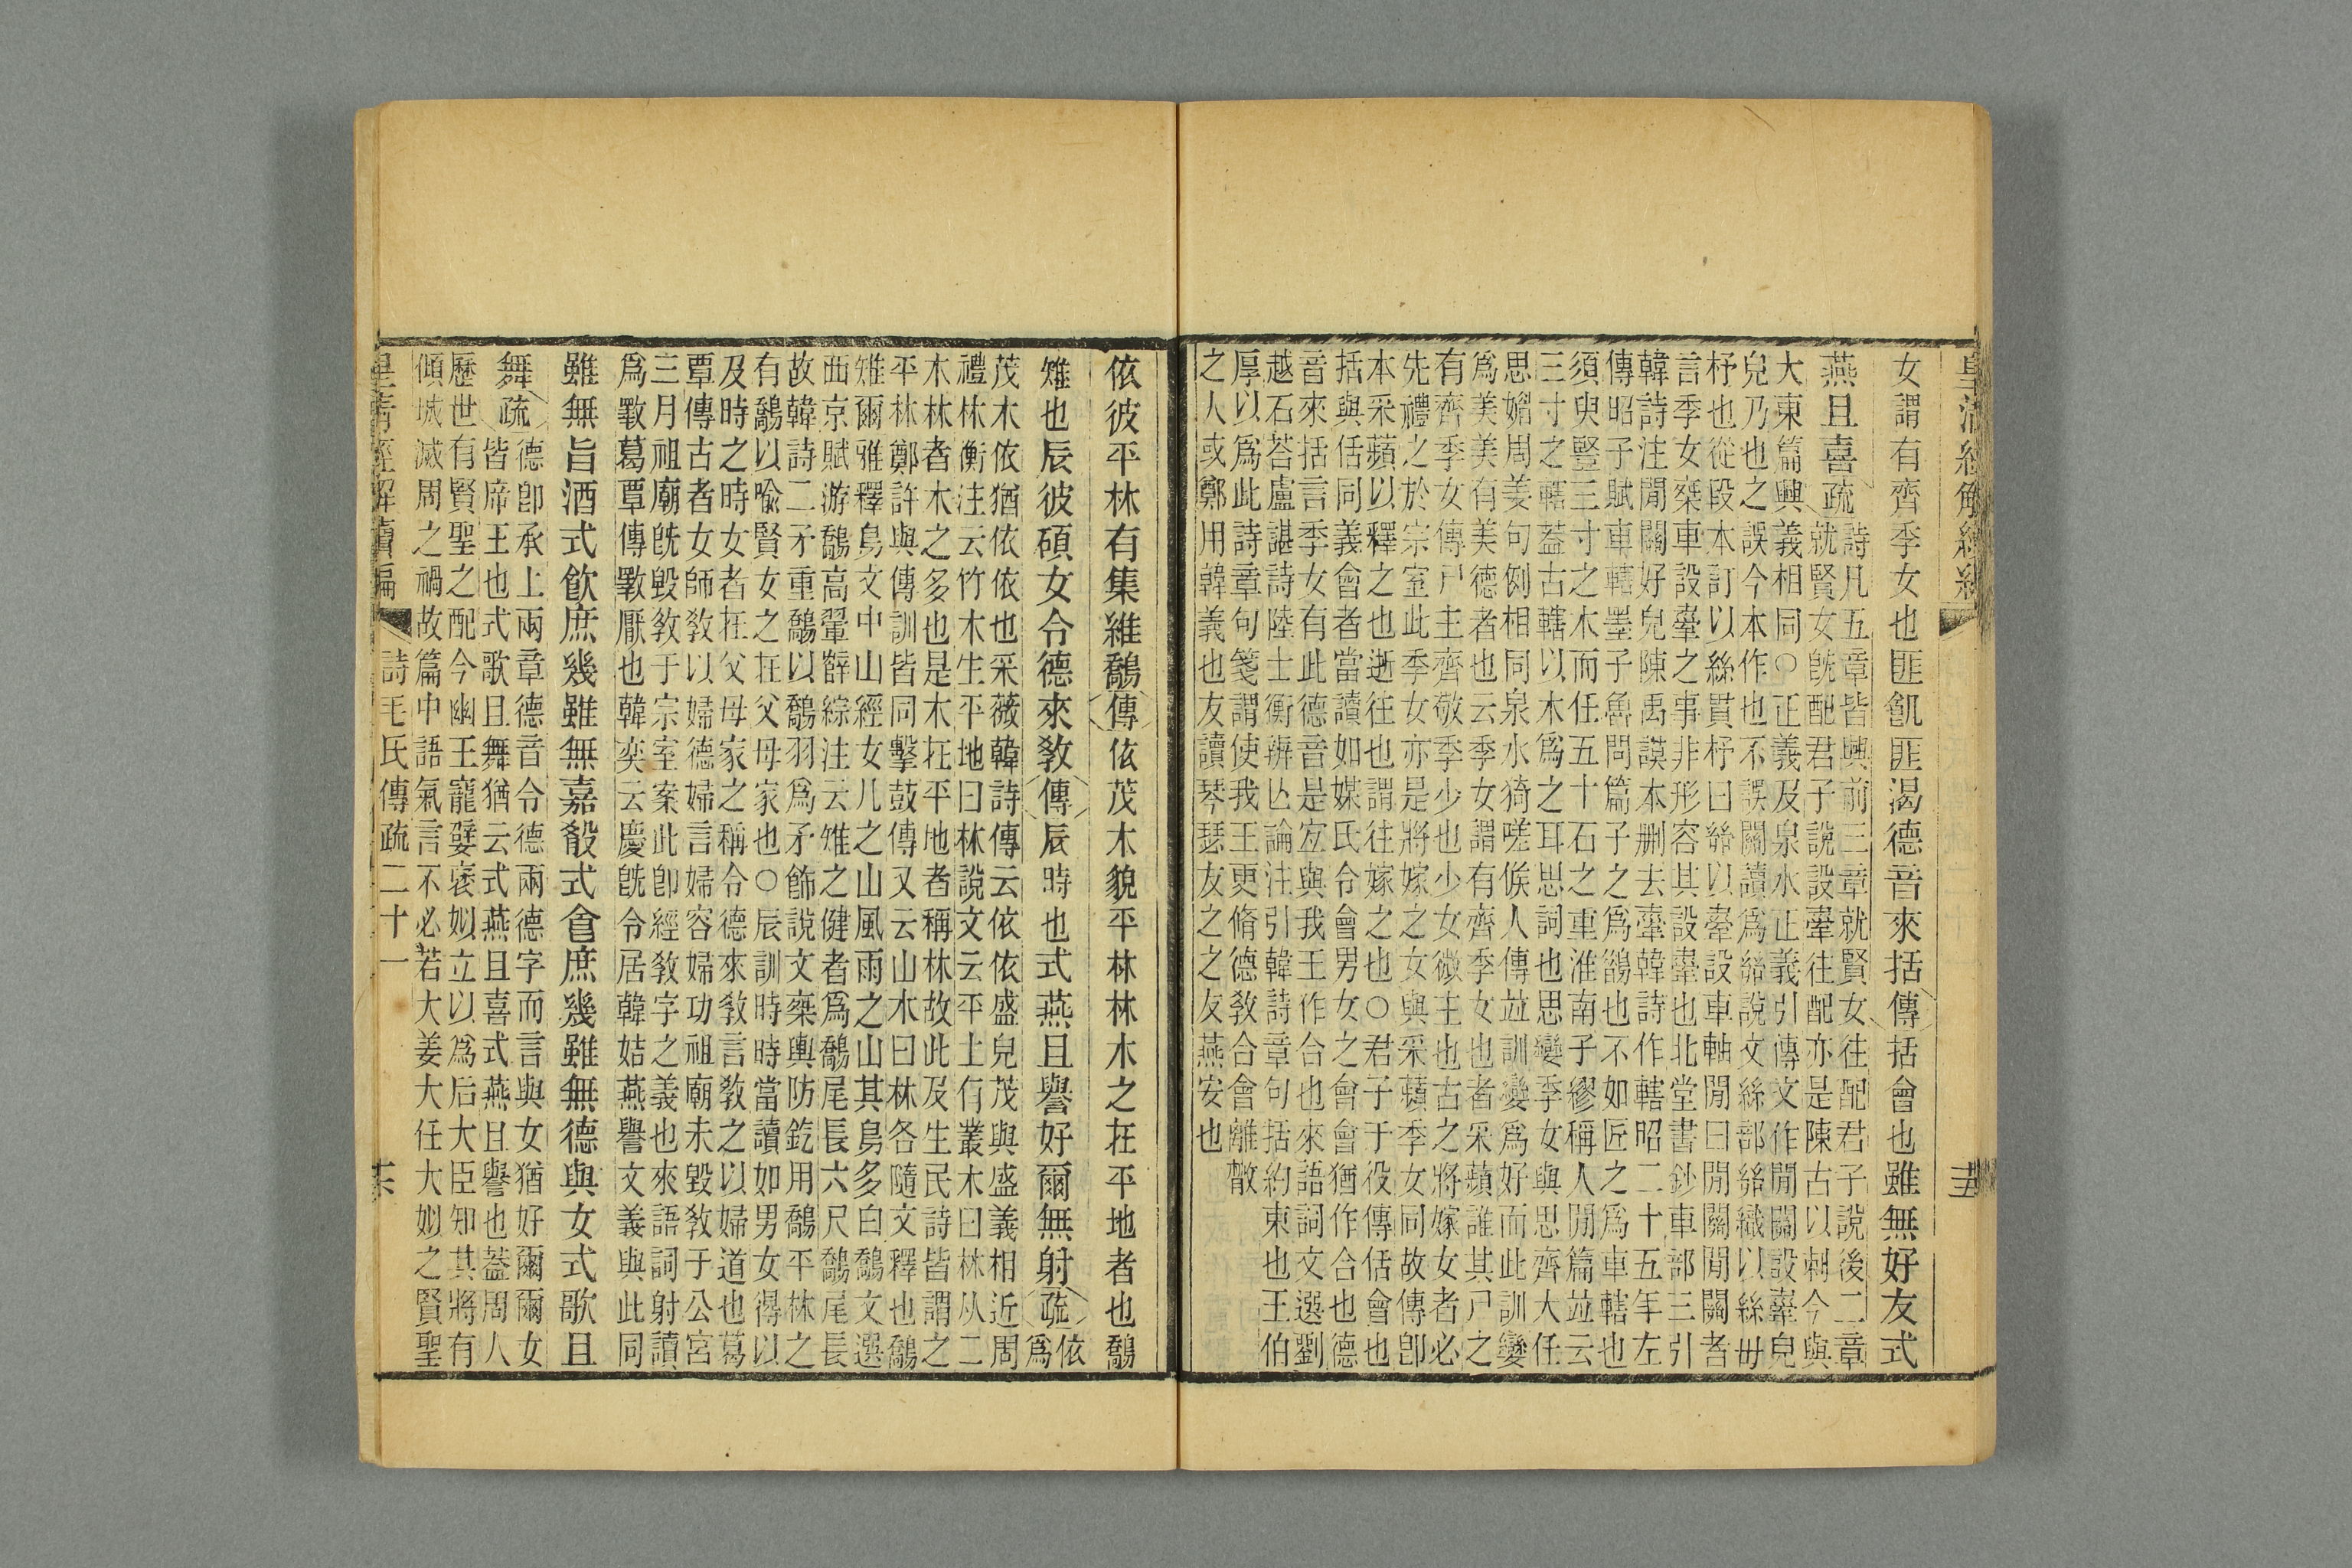 女謂有齊季女也匪飢匪渴德音來括傳括會也雖無好友式
燕且喜疏
詩凡五章皆興前三章就賢女往配君子說後二章
就賢女旣配君子說設舝往配亦是陳古以刺今與
大東篇興義相同○正義及泉水正義引傳文作閒關設舝皃
皃乃也之誤今本作也不誤關讀爲𢇇說文絲部𢇇織以絲毌
杼也從段本訂以絲貫杼曰𢇇以舝設車軸閒曰閒關閒關者
言季女椉車設舝之事非形容其設舝也北堂書鈔車部三引
韓詩注閒關好皃陳禹謨本刪去舝韓詩作轄昭二十五年左
傳昭子賦車轄墨子魯問篇子之爲䧿也不如匠之爲車轄也
須臾豎三寸之木而任五十石之重淮南子繆稱人閒篇竝云
三寸之轄蓋古轄以木爲之耳思詞也思孌季女與思齊大任
思媚周姜句例相同泉水猗嗟候人傳竝訓孌爲好而此訓孌
爲美美有美德者也云季女謂有齊季女也者采蘋誰其尸之
有齊季女傳尸主齊敬季少也少女微主也古之將嫁女者必
先禮之於宗室此季女亦是將嫁之女與采蘋季女同故傳卽
本采蘋以釋之也逝往也謂往嫁之也○君子于役傳佸會也
括與佸同義會者當讀如媒氏令會男女之會會猶作合也德
音來括言季女有此德音是宐與我王作合也來語詞文選劉
越石荅盧諶詩陸士衡辨亾論注引韓詩章句括約束也王伯
厚以爲此詩章句箋謂使我王更脩德敎合會離散
之人或鄭用韓義也友讀琴瑟友之之友燕安也
依彼平林有集維鷮傳依茂木貌平林林木之在平地者也鷮
雉也辰彼碩女令德來敎傳辰時也式燕且譽好爾無射疏
依
爲
茂木依猶依依也采薇韓詩傳云依依盛皃茂與盛義相近周
禮林衡注云竹木生平地曰林說文云平土有叢木曰林从二
木林者木之多也是木在平地者稱林故此及生民詩皆謂之
平林鄭許與傳訓皆同擊鼓傳又云山木曰林各隨文釋也鷮
雉爾雅釋鳥文中山經女几之山風雨之山其鳥多白鷮文選
西京賦游鷮高翬薛綜注云雉之健者爲鷮尾長六尺鷮尾長
故韓詩二矛重鷮以鷮羽爲矛飾說文椉輿防釳用鷮平林之
有鷮以喩賢女之在父母家也○辰訓時時當讀如男女得以
及時之時女者在父母家之稱令德來敎言敎之以婦道也葛
覃傳古者女師敎以婦德婦言婦容婦功祖廟未毀敎于公宮
三月祖廟旣毀敎于宗室案此卽經敎字之義也來語詞射讀
爲斁葛覃傳斁厭也韓奕云慶旣令居韓姞燕譽文義與此同
雖無旨酒式飮庶幾雖無嘉殽式食庶幾雖無德與女式歌且
舞疏
德卽承上兩章德音令德兩德字而言與女猶好爾爾女
皆席王也式歌且舞猶云式燕且喜式燕且譽也蓋周人
歷世有賢聖之配今幽王寵嬖褒姒立以爲后大臣知其將有
傾城滅周之禍故篇中語氣言不必若大姜大任大姒之賢聖
皇清經解續編 詩毛氏傳疏二十一